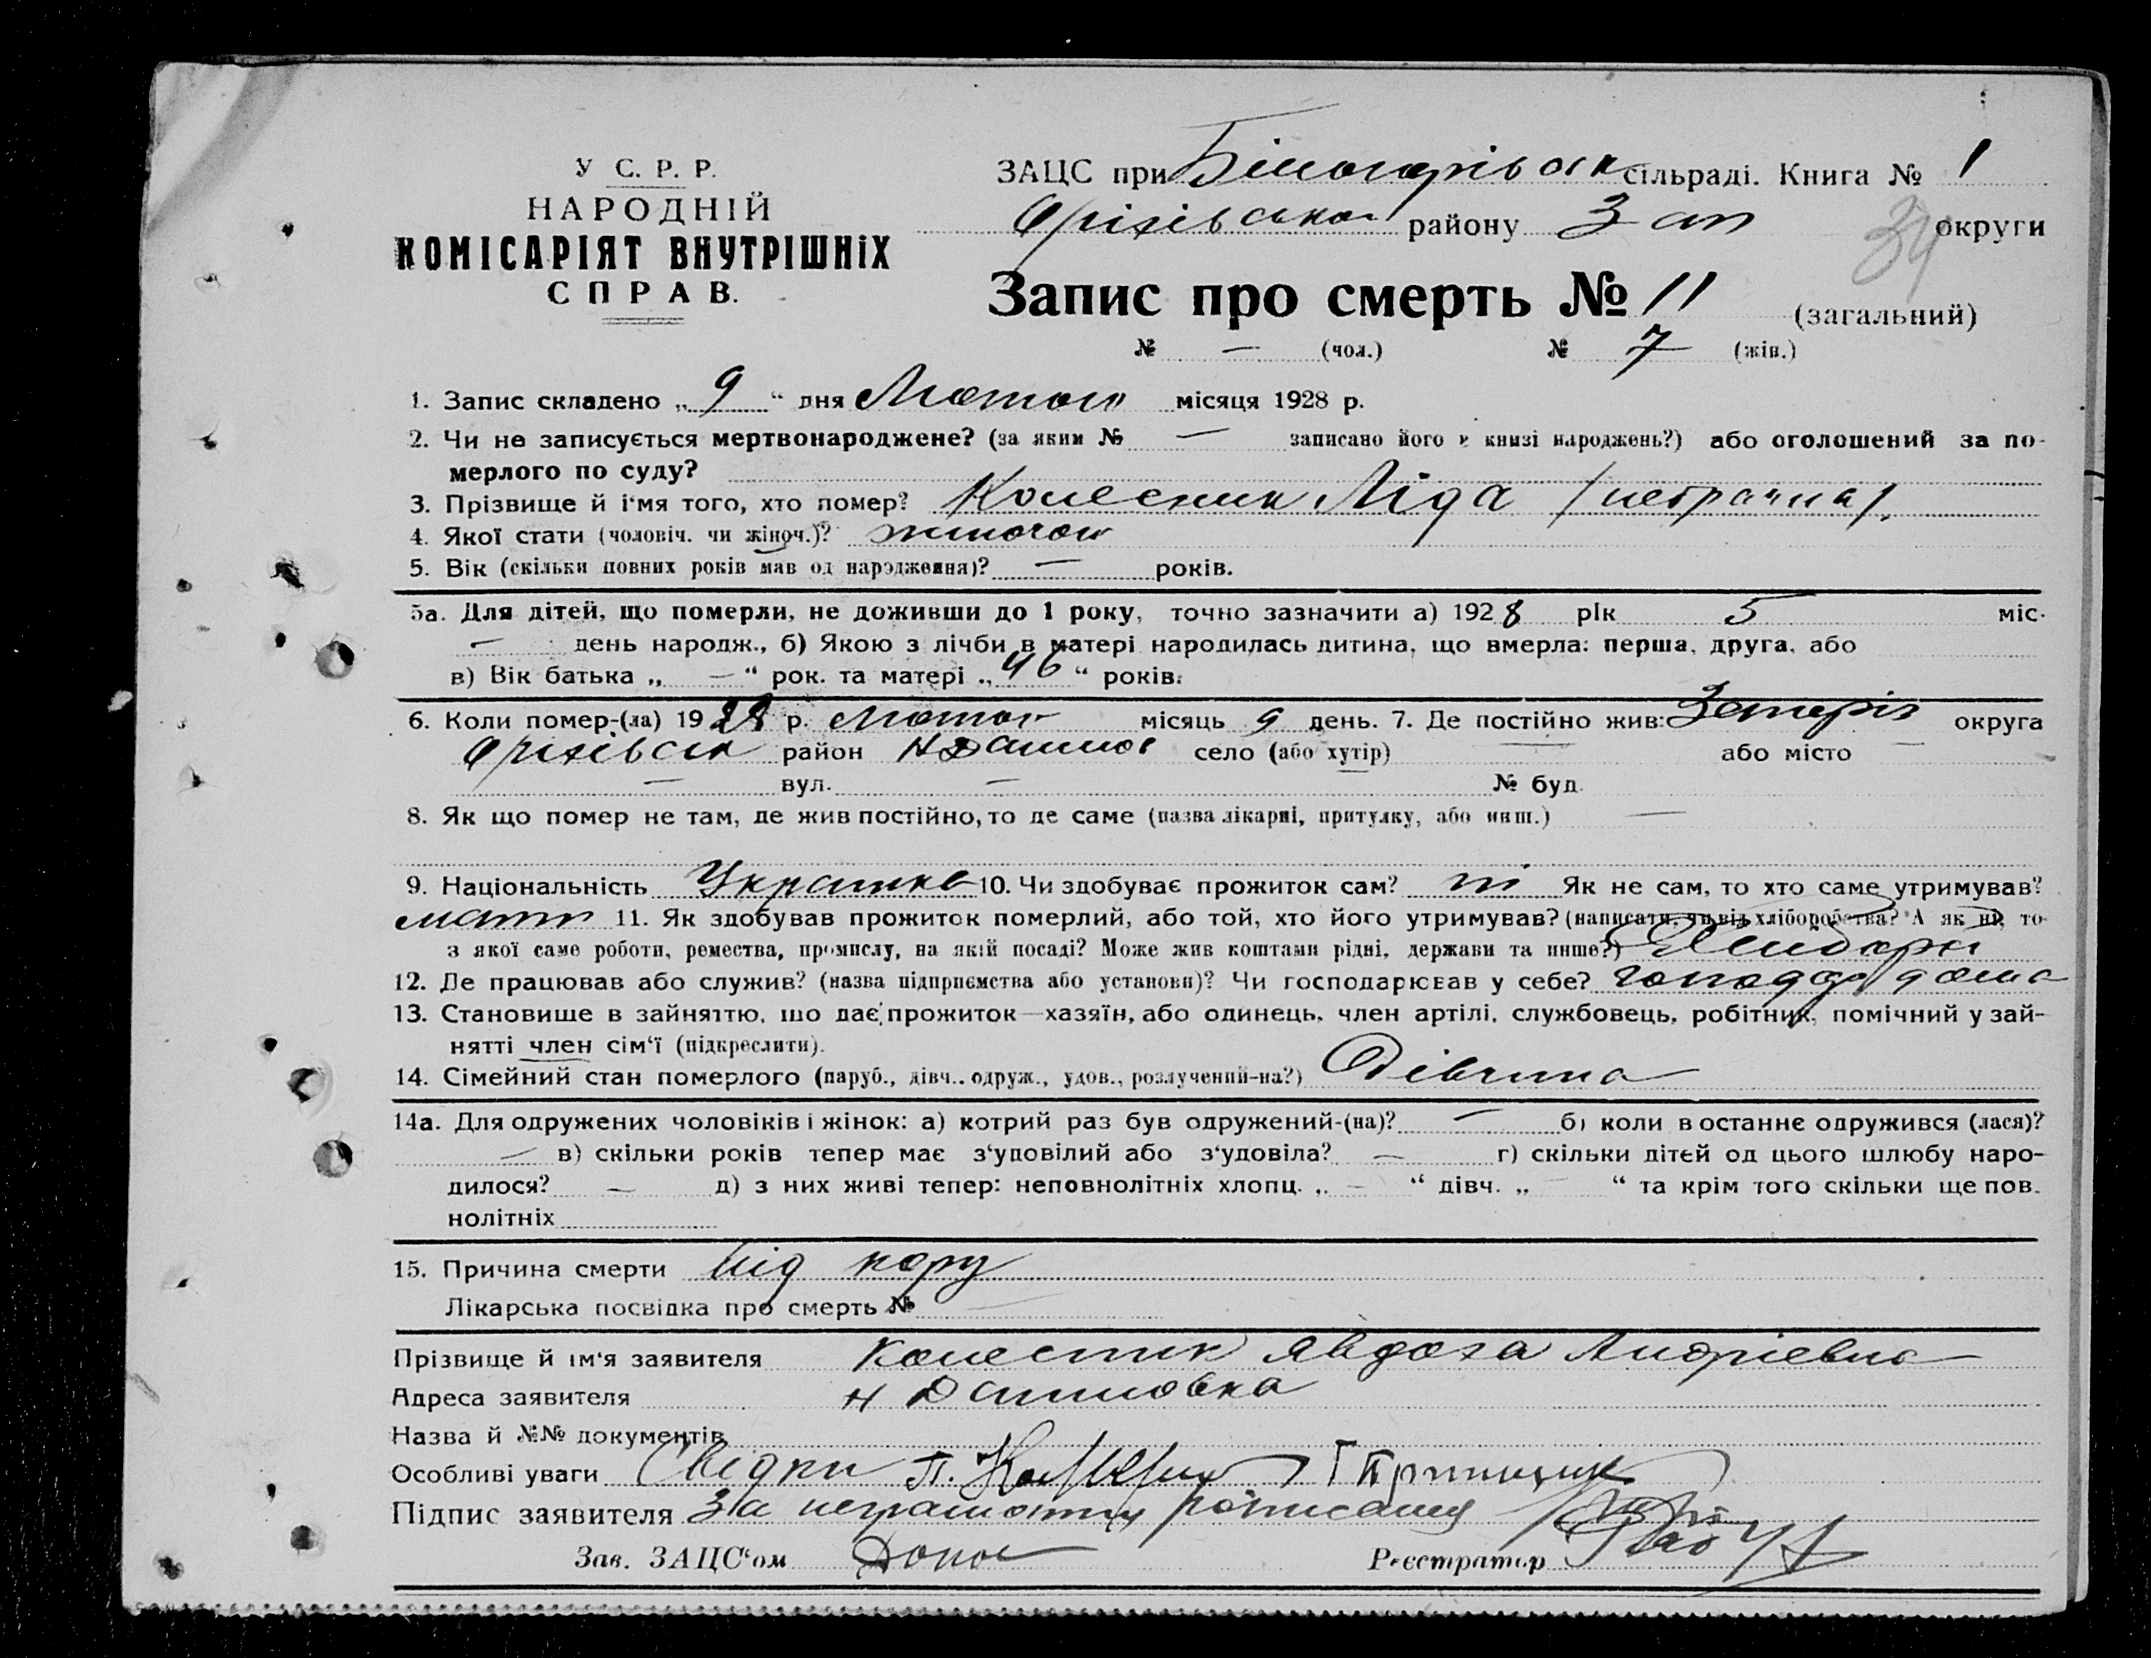 У С. Р. Р.
НАРОДНІЙ
КОМІСАРІЯТ ВНУТРІШНІХ
СПРАВ.
ЗАЦС при Білогорівськ сільраді. Книга № 1
Оріхівського району Зап округи
34
Запис про смерть № 11 (загальний)
№ — (чол.) № 7 (жін.)
1. Запис складено „ 9 “ дня Лютого місяця 1928 р.
2. Чи не записується мертвонароджене? (за яким № — записано його в книзі народжень?) або оголошений за по-
мерлого по суду?
3. Прізвище й і'мя того, хто помер? Колесник Ліда /небрачна/.
4. Якої стати (чоловіч. чи жіноч.)? жиночои
5. Вік (скільки повних років мав од народження)? — років.
5а. Для дітей, що померли, не доживши до 1 року, точно зазначити а) 1928 рік 5 міс.
— день народж., б) Якою з лічби в матері народилась дитина, що вмерла: перша, друга, або
в) Вік батька „ — “ рок. та матері „ 46 “ років.
6. Коли помер-(ла) 1928 р. Лютого місяць 9 день. 7. Де постійно жив: Запоріз округа
Оріхівськ район Н Данилов село (або хутір) — або місто —
— вул. — № буд.
8. Як що помер не там, де жив постійно, то де саме (назва лікарні, притулку, або инш.) —
9. Національність Украинка 10. Чи здобуває прожиток сам? ні Як не сам, то хто саме утримував?
мати 11. Як здобував прожиток померлий, або той, хто його утримував? (написати, чи від хліборобства? А як ні, то
з якої саме роботи, ремества, промислу, на якій посаді? Може жив коштами рідні, держави та инше?) Хлибороб
12. Де працював або служив? (назва підприємства або установи)? Чи господарював у себе? дома
13. Становище в зайняттю, що дає прожиток—хазяїн, або одинець, член артілі, службовець, робітник, помічний у зай-
нятті член сім'ї (підкреслити).
14. Сімейний стан померлого (паруб., дівч.. одруж., удов., розлучений-на?) Дівчина
14а. Для одружених чоловіків і жінок: а) котрий раз був одружений-(на)? — б) коли в останнє одружився (лася)?
— в) скільки років тепер має з'уповілий або з'удовіла? — г) скільки дітей од цього шлюбу наро-
дилося? — д) з них живі тепер: неповнолітніх хлопц. „ — “ дівч. „ — “ та крім того скільки ще пов.
нолітніх
15. Причина смерти Від кору
Лікарська посвідка про смерть № —
Прізвище й ім'я заявителя Колесник Явдоха Андріевна
Адреса заявителя Н Даниловка
Назва й №№ документів
Особливі уваги Свідки П. Колесник Г Припщик
Підпис заявителя За неграмотну росписався
Зав. ЗАЦС'ом Реєстратор